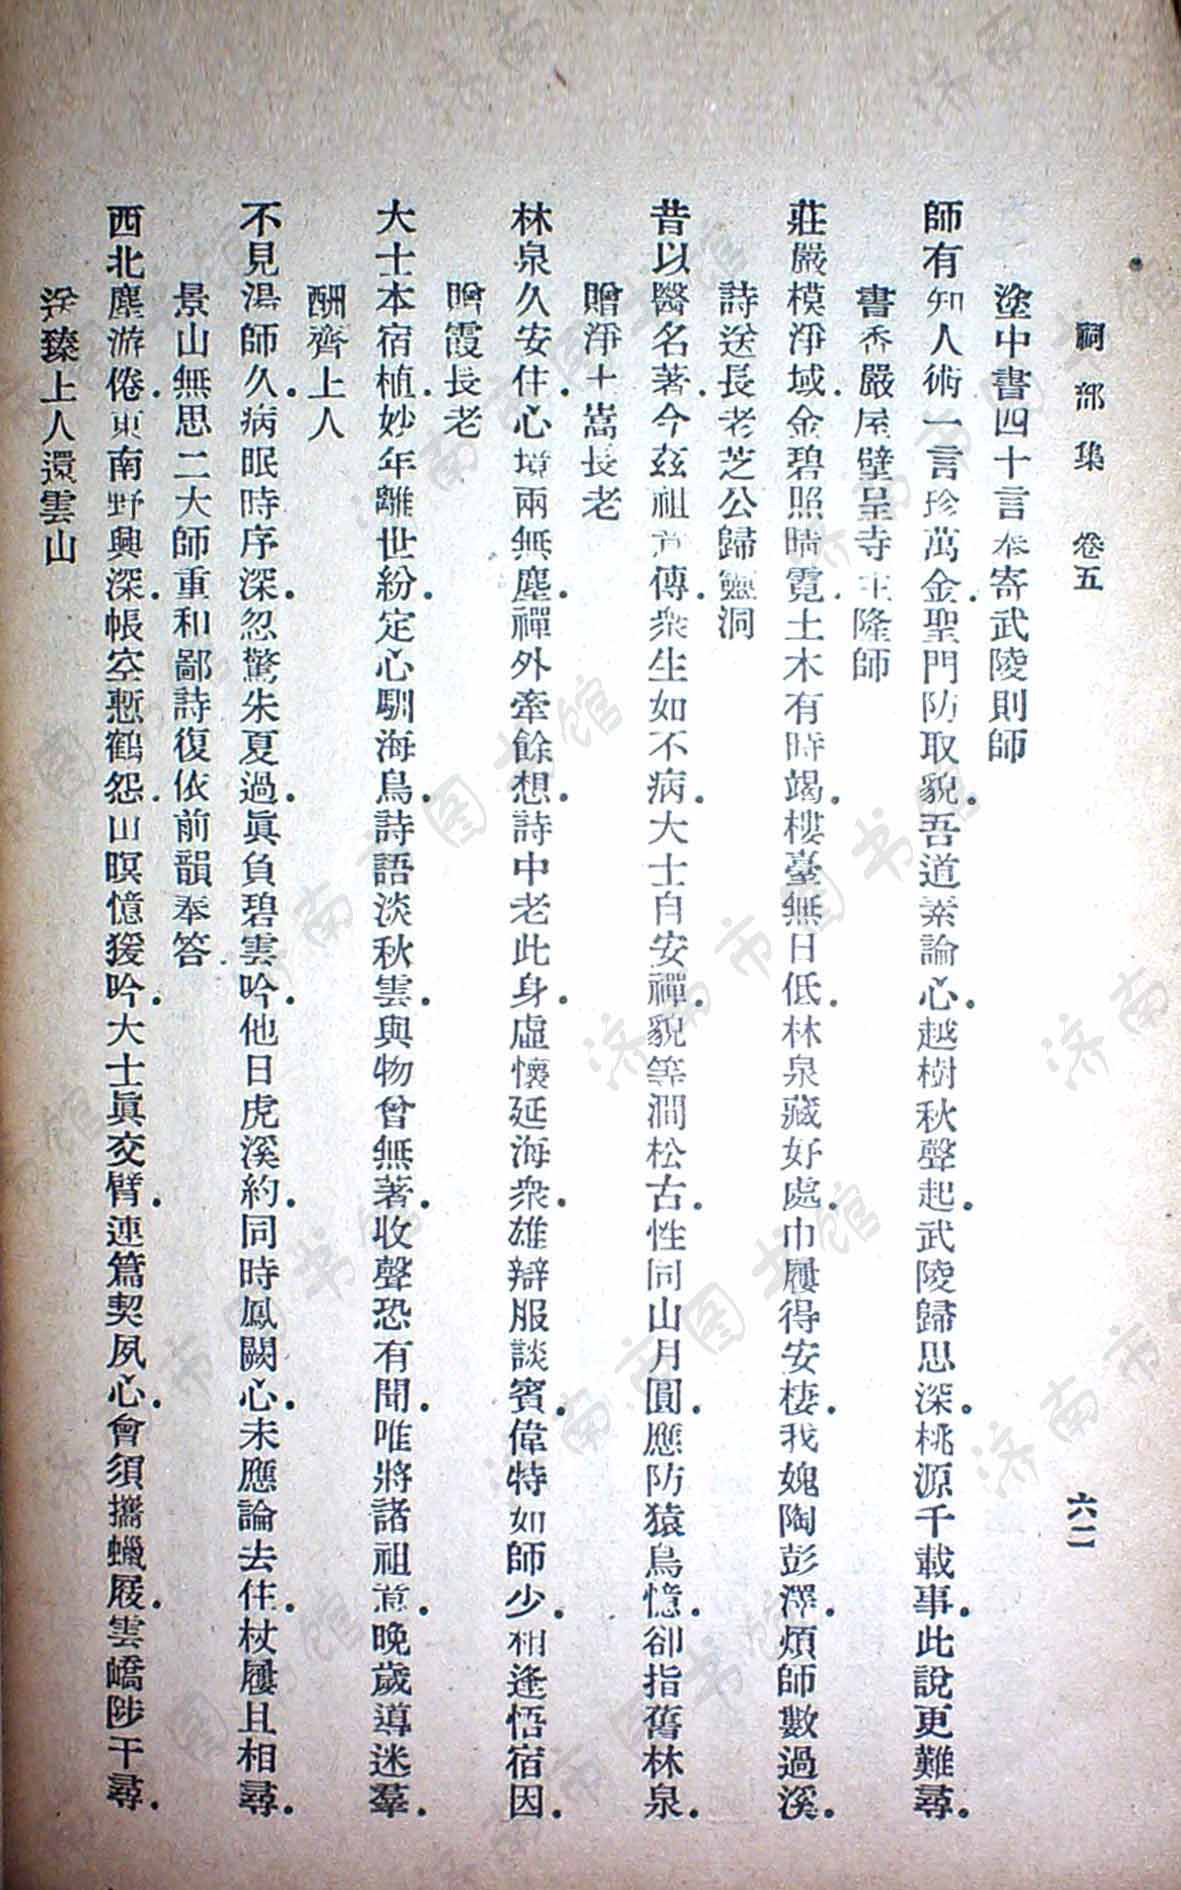 祠部集 卷五 六二
塗中書四十言奉寄武陵則師
師有知人術一言珍萬金聖門防取貌吾道素論心越樹秋聲起武陵歸思深桃源千載事此說更難尋
書香嚴屋壁呈寺主隆師
莊嚴模淨域金碧照晴霓土木有時竭樓臺無日低林泉藏好處巾屨得安棲我媿陶彭澤煩師數過溪
詩送長老芝公歸靈洞
昔以醫名著今茲祖意傳衆生如不病大士自安禪貌等澗松古性同山月圓應防猿鳥憶卻指舊林泉
贈淨土嵩長老
林泉久安住心境兩無塵禪外牽餘想詩中老此身虛懷延海衆雄辯服談賓偉特如師少相逢悟宿因
贈霞長老
大士本宿植妙年離世紛定心馴海鳥詩語淡秋雲與物曾無著收聲恐有聞唯將諸祖意晚歲導迷羣
酬齊上人
不見湯師久病眠時序深忽驚朱夏過眞負碧雲吟他日虎溪約同時鳳闕心未應論去住杖屨且相尋
景山無思二大師重和鄙詩復依前韻奉答
西北塵游倦東南野興深帳空慙鶴怨山暝憶猨吟大士眞交臂連篇契夙心會須攜蠟屐雲嶠陟千尋
送臻上人還雲山
济南市图书馆